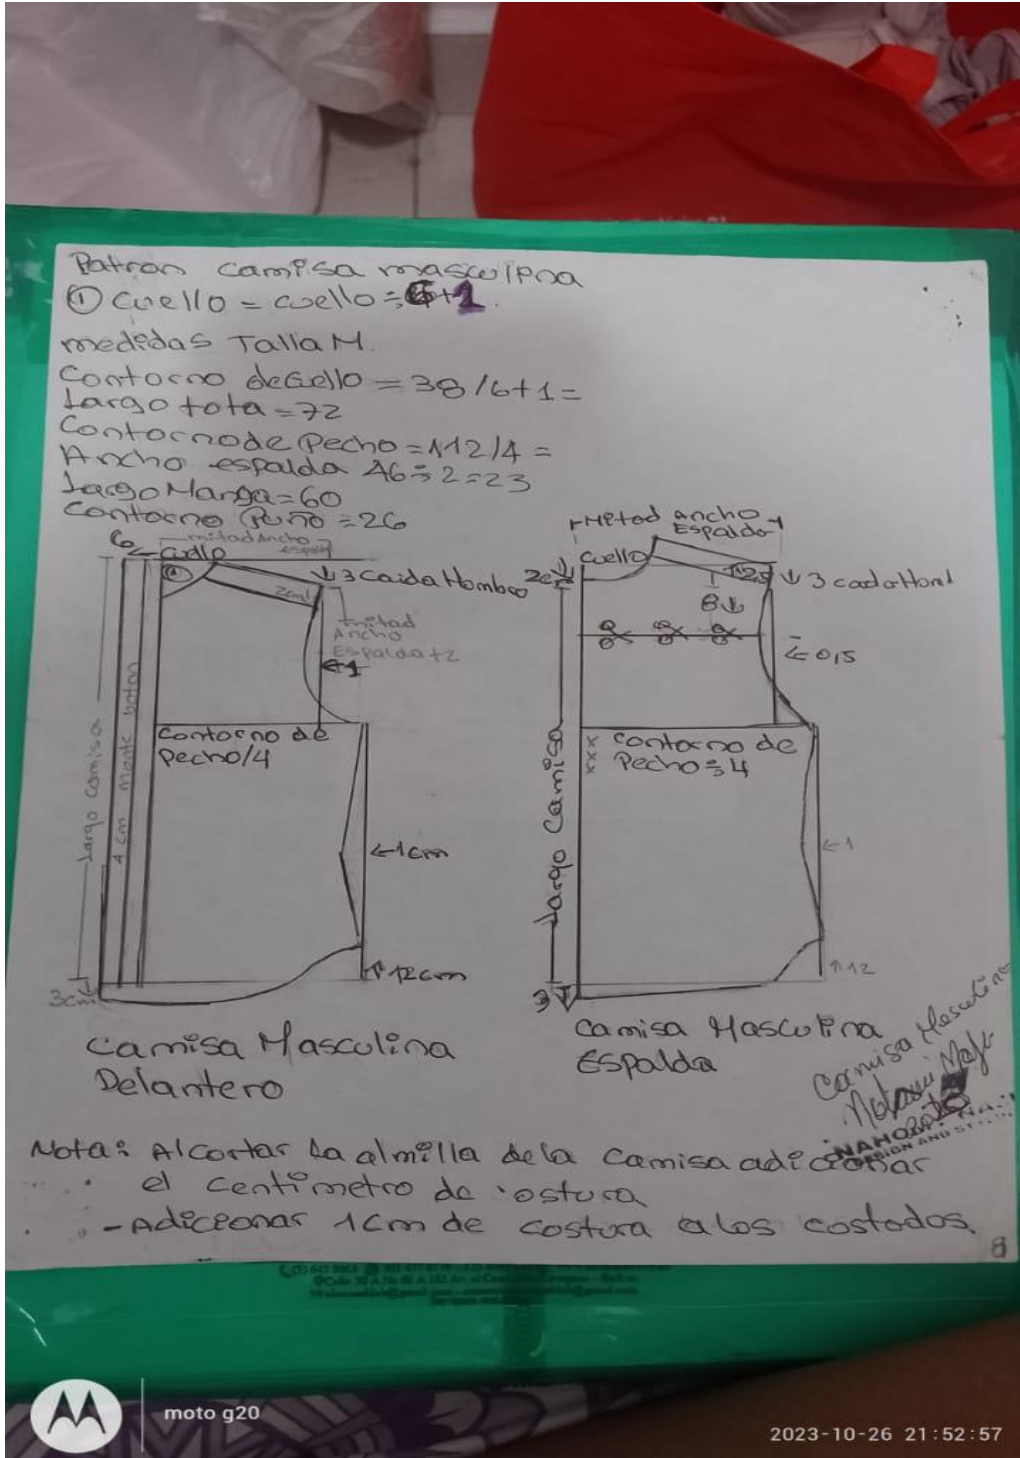 Patron camisa masculina
① Cuello = cuello ÷ 6+1.
medidas Talla M.
Contorno de Cello = 38/6+1=
Largo tota = 72
Contorno de Pecho = 112/4 =
Ancho espalda 46÷2=23
Largo Manga = 60
Contorno Puño = 26
6 ← cuello
mitad Ancho
espal
①
2cm
↓ 3 Caida Hombro
mitad
Ancho
Espalda +2
←1
Largo Camisa
4 cm monte boton
Contorno de
Pecho/4
←1cm
↑12cm
3cm
Camisa Masculina
Delantero
Mitad Ancho
Espalda
Cuello
2cm
↓ 3 caida Hom
8↓
←0,5
Largo Camisa
xxx
Contorno de
Pecho ÷ 4
←1
↑12
3
Camisa Masculina
Espalda
Camisa
NAHO
DESIGN AND
Nota: Al cortar La almilla dela Camisa adicionar
el Centimetro de ostura
- Adicionar 1cm de costura a los costados.
8
moto g20
2023-10-26 21:52:57